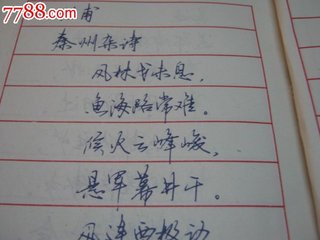 7788.com
甫
秦州杂诗
风林戈未息,
鱼海路常难。
候火云峰峻,
悬军幕井干。
风连西极动